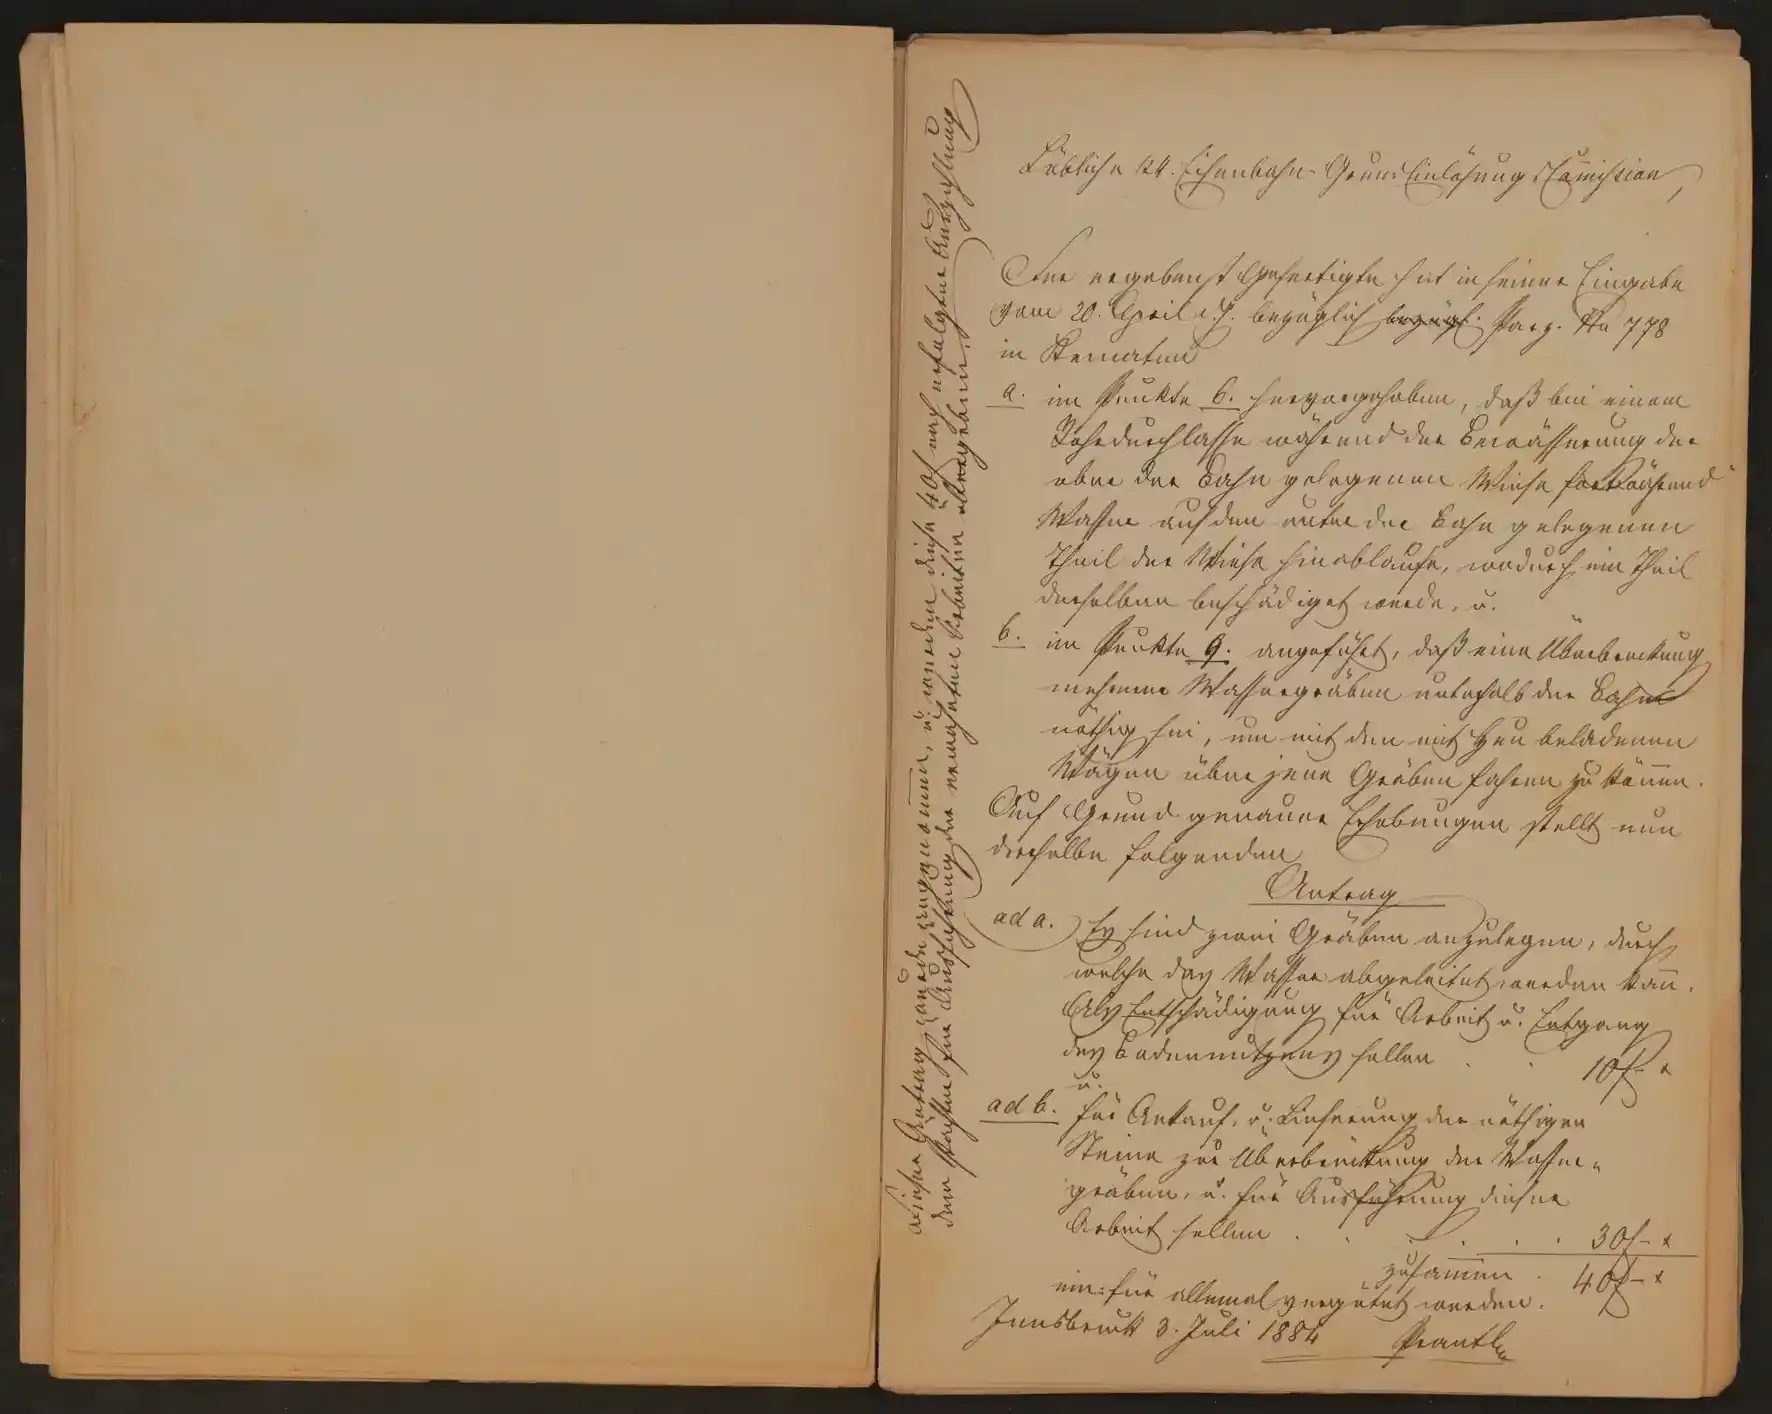 Löbliche kk. Eisenbahn-Grund Einlösungs Com̄ission,
Der ergebenst Gefertigte hat in seiner Eingabe
vom 20. April d. J. bezüglich bezügl. Parz. No 778
in Kematen
a. im Punkte 6. hervorgehoben, daß bei einem
Rohrdurchlasse während der Bewässerung der
ober der Bahn gelegenen Wiese fortwährend
Wasser auf den unter der Bahn gelegenen
Theil der Wiese hinablaufe, wodurch ein Theil
derselben beschädiget werde, u.
b. im Punkte 9. angeführt, daß eine Überbrückung
mehrerer Wassergräben unterhalb der Bahn
nöthig sei, um mit den mit Heu beladenen
Wägen über jene Gräben fahren zu kön̄en.
Auf Grund genauer Erhebungen stellt nun
derselbe folgenden
Antrag
ad a. Es sind zwei Gräben anzulegen, durch
welche das Wasser abgeleitet werden kan̄.
Als Entschädigung für Arbeit u. Entgang
des Bodennutzens sollen . . 10 f - x
u.
ad b. für Ankauf, u. Lieferung der nöthigen
Steine zur Überbrückung der Wasser-
gräben, u. für Ausführung dieser
Arbeit sollen . . . . . . 30 f - x
zusam̄en . 40 f - x
ein- für allemal vergütet werden.
Innsbruck 3. Juli 1884 Prantl
Dieser Antrag wurde angenom̄en, u. werden diese 40 f nach erfolgter Auszahlung
dem Pächter für Ausführung der erwähnten Arbeiten übergeben.